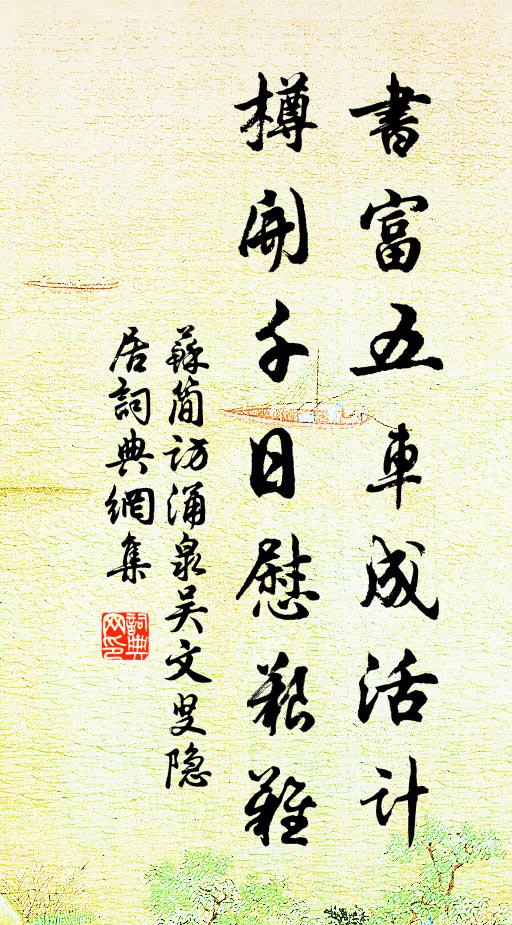 書富五車成活計
樽開千日慰艱難
蘇簡訪涌泉吴文叟隐
居詞典網集
詞典网印